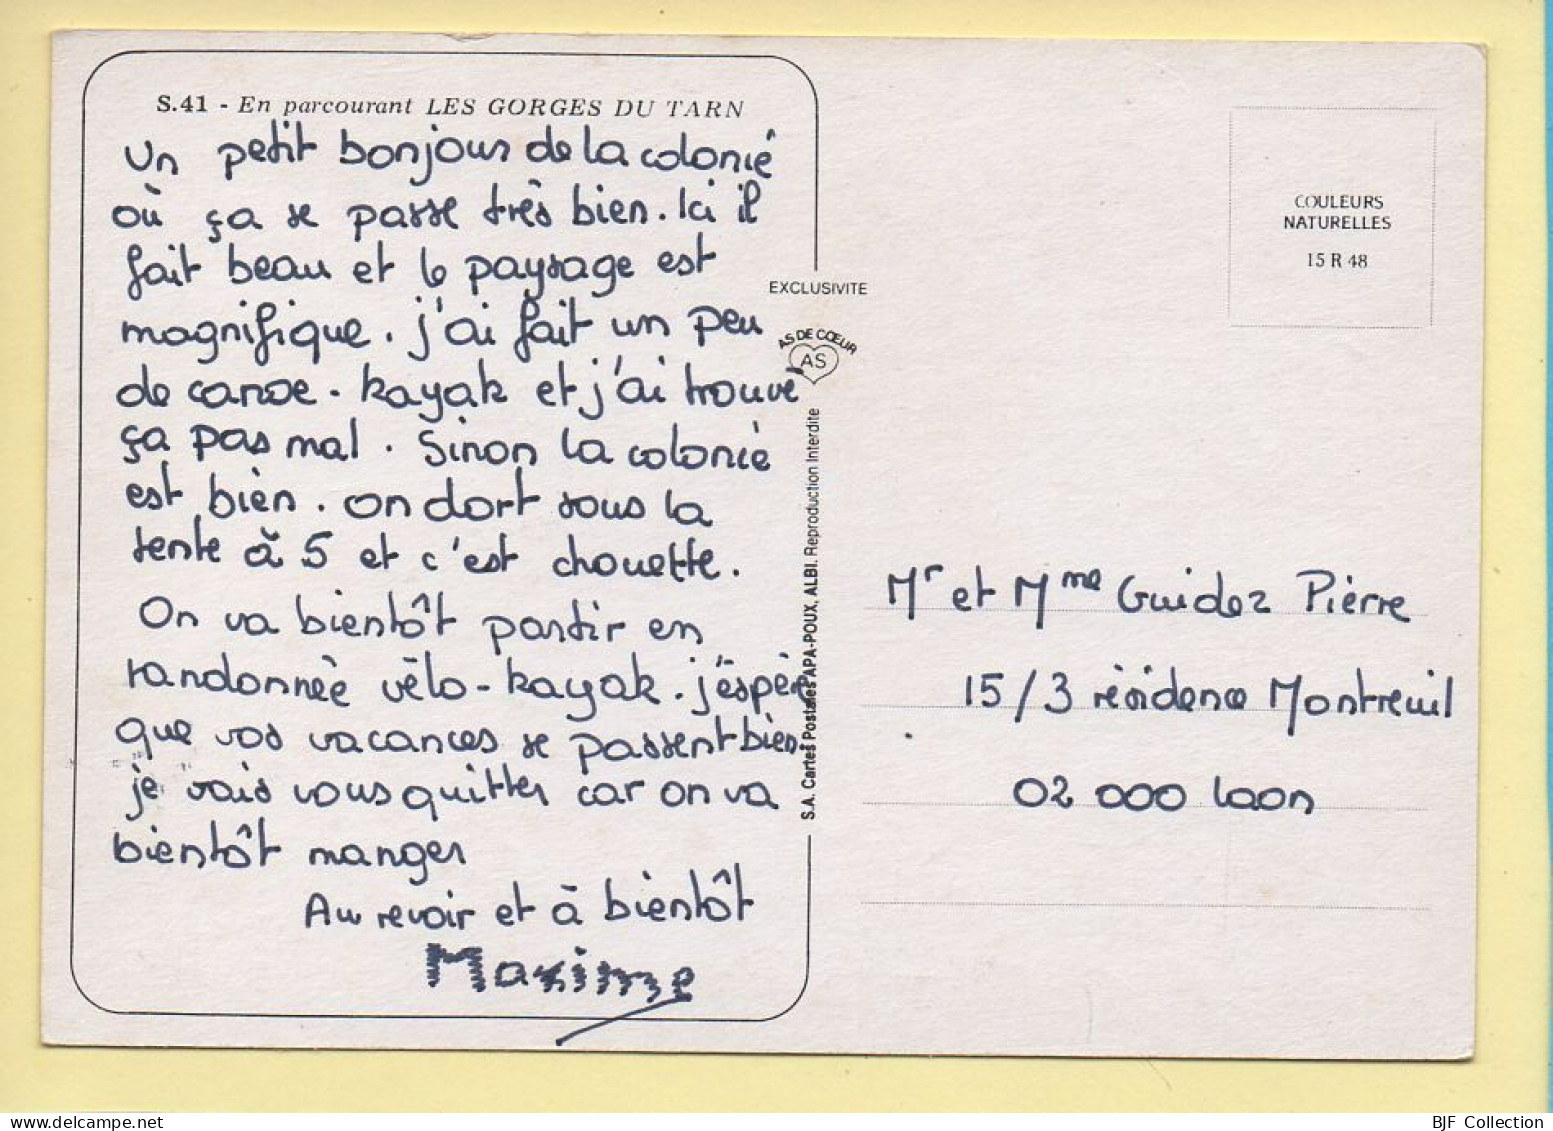 S.41 - En parcourant LES GORGES DU TARN
Un petit bonjour de la colonie
où ça se passe très bien. Ici il
fait beau et le paysage est
magnifique. j'ai fait un peu
de canoe-kayak et j'ai trouvé
ça pas mal. Sinon la colonie
est bien. on dort sous la
tente à 5 et c'est chouette.
On va bientôt partir en
randonnée vélo-kayak. j'espère
que vos vacances se passent bien.
je vais vous quitter car on va
bientôt manger
Au revoir et à bientôt
Maxime
EXCLUSIVITE
AS DE CŒUR
AS
S.A. Cartes Postales APA-POUX, ALBI. Reproduction Interdite
COULEURS
NATURELLES
15 R 48
Mr et Mme Guidez Pierre
15/3 résidence Montreuil
02 000 Laon
BJF Collection